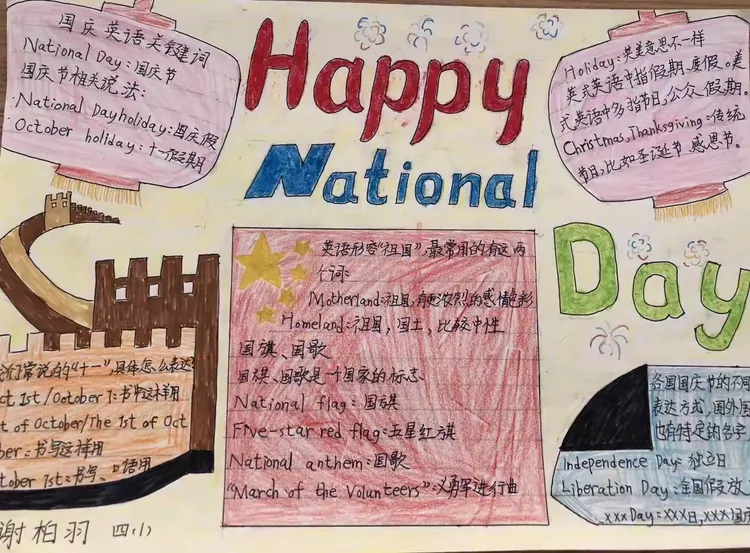 国庆英语关键词
National Day:国庆节
国庆节相关说法:
National Dayholiday:国庆假
October holiday:十一假期
Happy
National
Day
Holiday:英美意思不一样
英式英语中指假期.度假。美
式英语中多指节日,公众假期。
Christmas,Thanksgiving:传统
节日,比如圣诞节 感恩节。
英语形容“祖国”最常用的有这两
个词:
Motherland:祖国,有更浓烈的感情色彩
Homeland:祖国,国土,比较中性
国旗、国歌
国旗、国歌是一个国家的标志.
National flag:国旗
Five-star red flag:五星红旗
National anthem:国歌
“March of the Volunteers”:义勇军进行曲
们常说的“十一”具体怎么表达
ct 1st/October 1:书中这样用
st of October/The 1st of Oct
ber:书写这样用
tober 1st:书写、口语用
各国国庆节的不同
表达方式,国外国
也有特定的名字
Independence Day:独立日
Liberation Day:全国假放
xxxDay=xxx日,xxx国庆
谢柏羽 四(1)